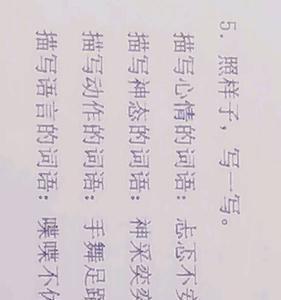 5. 照样子，写一写。
描写心情的词语：忐忑不安
描写神态的词语：神采奕奕
描写动作的词语：手舞足蹈
描写语言的词语：喋喋不休